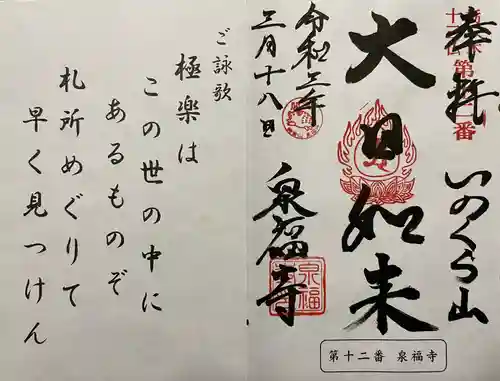 奉拝
第 番
いのくら山
大日如来
令和二年
三月十八日
泉福寺
泉福
第十二番 泉福寺
ご詠歌
極楽は
この世の中に
あるものぞ
札所めぐりて
早く見つけん